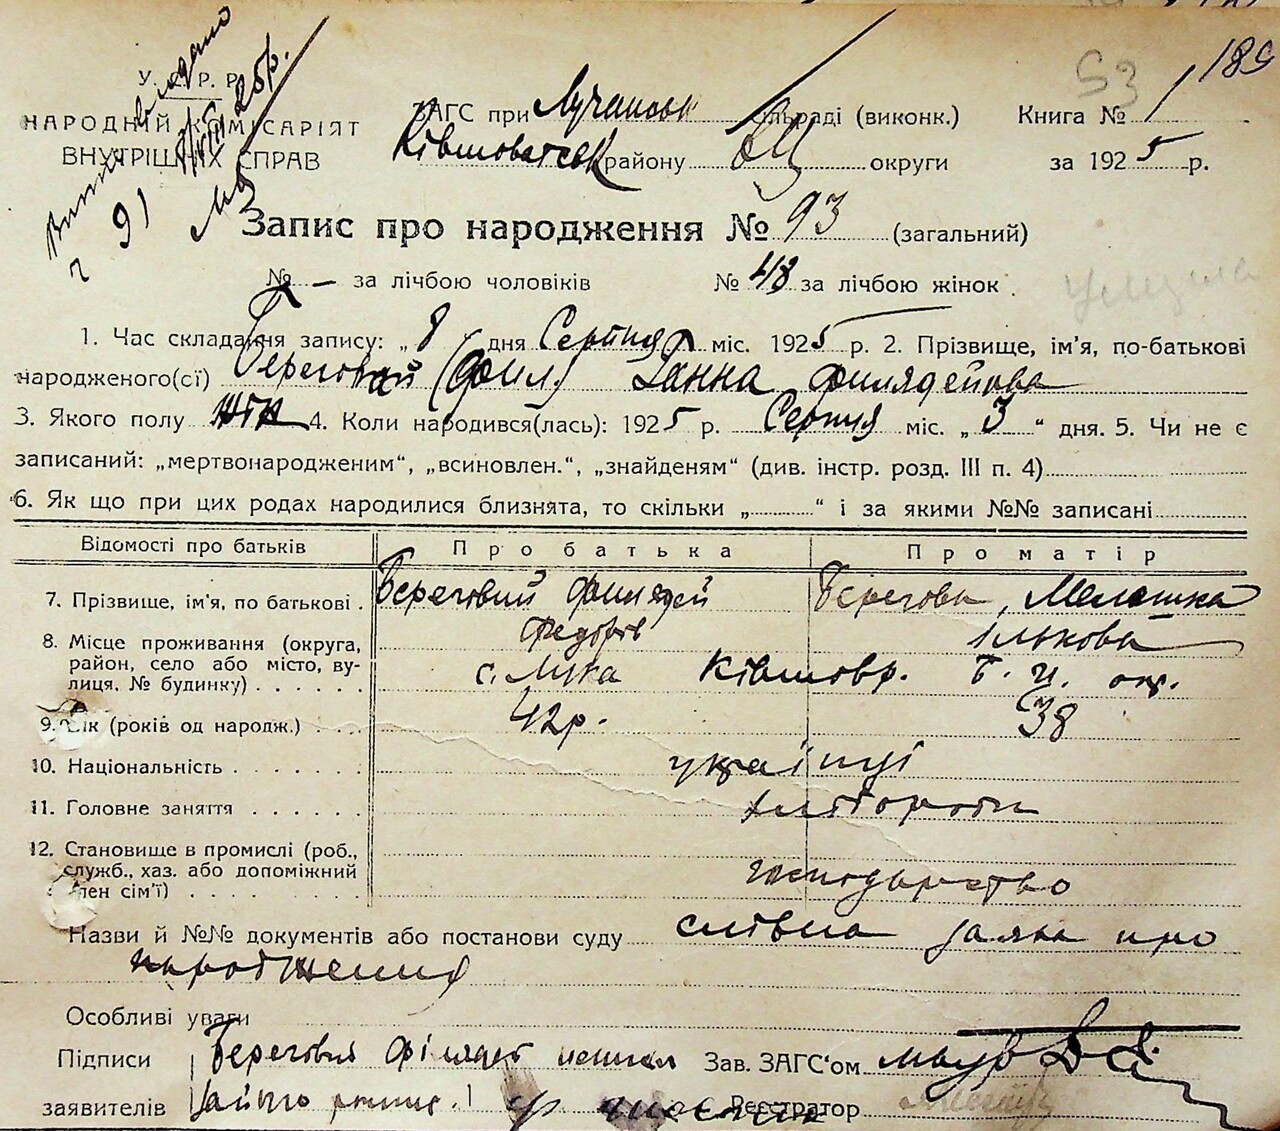 189
53
Витяг видано
ч 91
25р.
У. С. Р. Р.
НАРОДНІЙ КОМІСАРІЯТ
ВНУТРІШНІХ СПРАВ
ЗАГС при Лучанськ сільраді (виконк.) Книга № 1
Ківшоватськ району БЦ округи за 1925 р.
Запис про народження № 93 (загальний)
№ — за лічбою чоловіків № 48 за лічбою жінок
1. Час складання запису: „8“ дня Серпня міс. 1925 р. 2. Прізвище, ім'я, по-батькові
народженого(сі) Береговая (Фил.) Ганна Филядейова
3. Якого полу жін 4. Коли народився(лась): 1925 р. Серпня міс. „3“ дня. 5. Чи не є
записаний: „мертвонародженим“, „всиновлен.“, „знайденям“ (див. інстр. розд. III п. 4)
6. Як що при цих родах народилися близнята, то скільки „ “ і за якими №№ записані
Відомості про батьків Про батька Про матір
7. Прізвище, ім'я, по батькові. Береговий Филядей Федорів Берегова, Мелашка Ількова
8. Місце проживання (округа, район, село або місто, вулиця, № будинку) с. Лука Ківшовр. Б. Ц. окр.
9. Вік (років од народж.) 42р. 38
10. Національність українці
11. Головне заняття хлібороби
12. Становище в промислі (роб., служб., хаз. або допоміжний член сім'ї) господарство
Назви й №№ документів або постанови суду слівна заява про
народження
Особливі уваги
Підписи Береговия Філядей Зав. ЗАГС'ом
заявителів Реєстратор